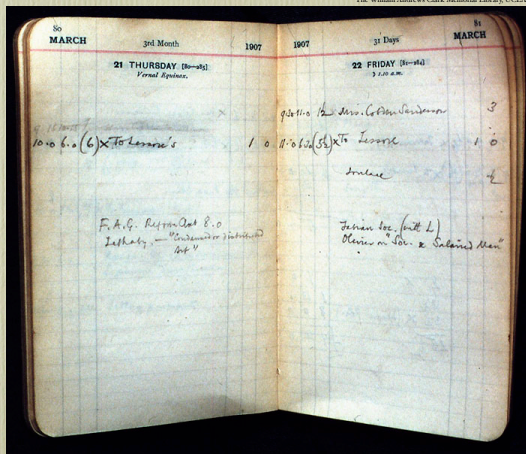 The William Andrews Clark Memorial Library, UCLA
80
MARCH 3rd Month 1907
21 THURSDAY [80—285]
Vernal Equinox.
10.0 6.0 (6) x To Lessore's 1 0
F.A.G. Reform Club 8.0
Lethaby, — "Condensed or distributed
Art"
81
1907 31 Days MARCH
22 FRIDAY [81—284]
☽ 1.10 a.m.
9.30 11.0 1½ Mrs. Cobden Sanderson 3
11.0 6.30 (5½) x To Lessore 1 0
Fabian Soc. (with L)
Olivier on "Soc. & Salaried Man"